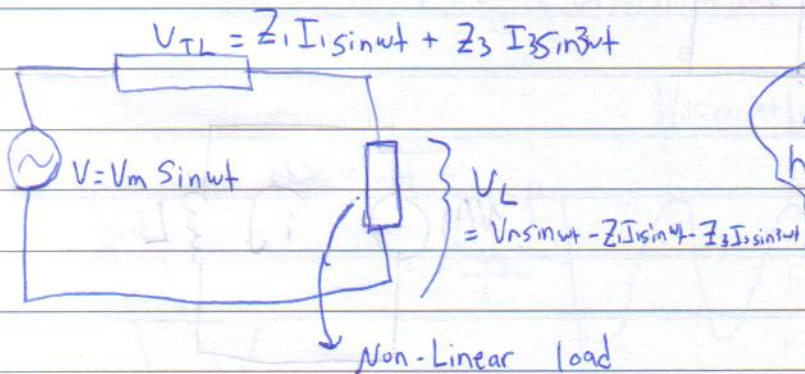 V_TL = Z₁ I₁ sinωt + Z₃ I₃ sin3ωt
V = Vm Sinωt
V_L
= Vm sinωt - Z₁I₁sinωt - Z₃I₃sin3ωt
h
Non-Linear load